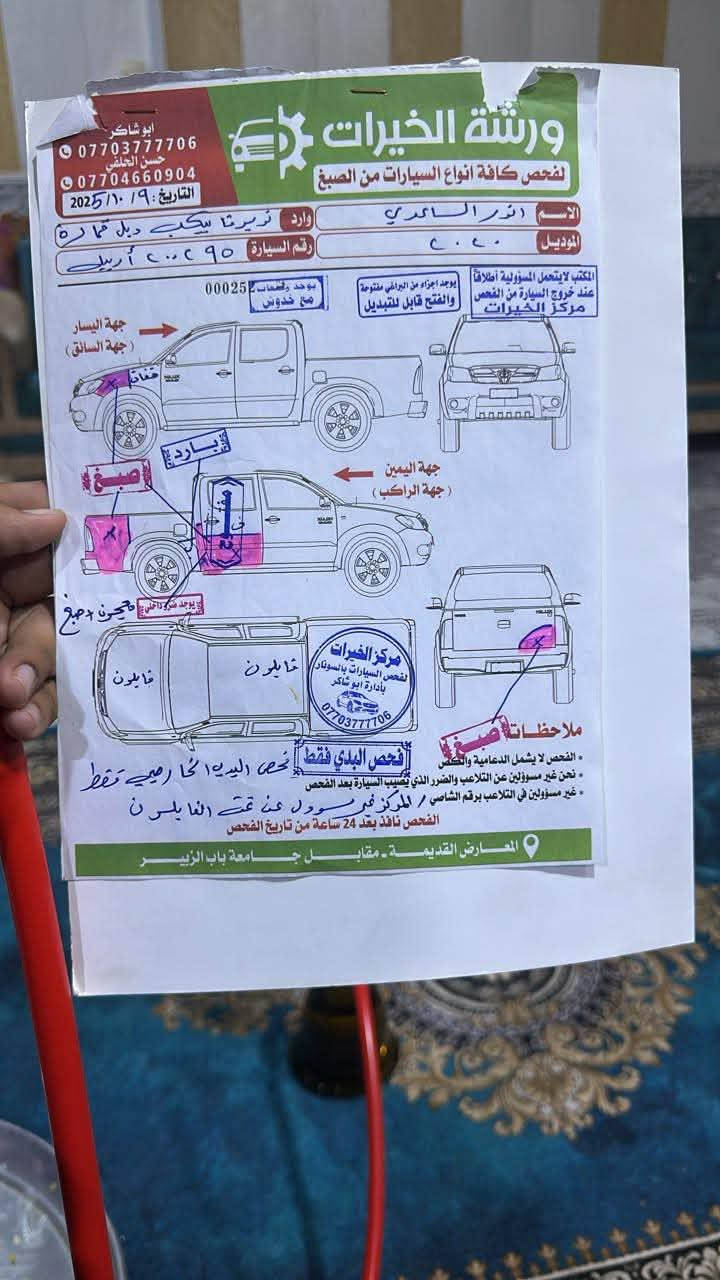 ورشة الخيرات
لفحص كافة انواع السيارات من الصبغ
ابو شاكر
07703777706
حسن الحلفي
07704660904
التاريخ: 9/10/2025
الاسم انور الساعدي
وارد بيكب دبل قمارة
الموديل ٢٠٢٠
رقم السيارة ٢٠٠٢٩٥ أربيل
المكتب لا يتحمل المسؤولية أطلاقاً
عند خروج السيارة من الفحص
مركز الخيرات
يوجد اجزاء من البراغي مفتوحة
والفتح قابل للتبديل
مع خدوش
00025
جهة اليسار
(جهة السائق)
صبغ
بارد
جهة اليمين
(جهة الراكب)
يوجد ضرر داخلي
معجون + صبغ
فايلون
فايلون
مركز الخيرات
لفحص السيارات بالسونار
بأدارة ابو شاكر
07703777706
صبغ
ملاحظات
فحص البدي فقط
• الفحص لا يشمل الدعامية والكلص
فحص البدي الخارجي فقط
• نحن غير مسؤولين عن التلاعب والضرر الذي يصيب السيارة بعد الفحص
• غير مسؤولين في التلاعب برقم الشاصي / المركز غير مسوول عن تحت الفايلون
الفحص نافذ بعد 24 ساعة من تاريخ الفحص
المعارض القديمة - مقابل جامعة باب الزبير